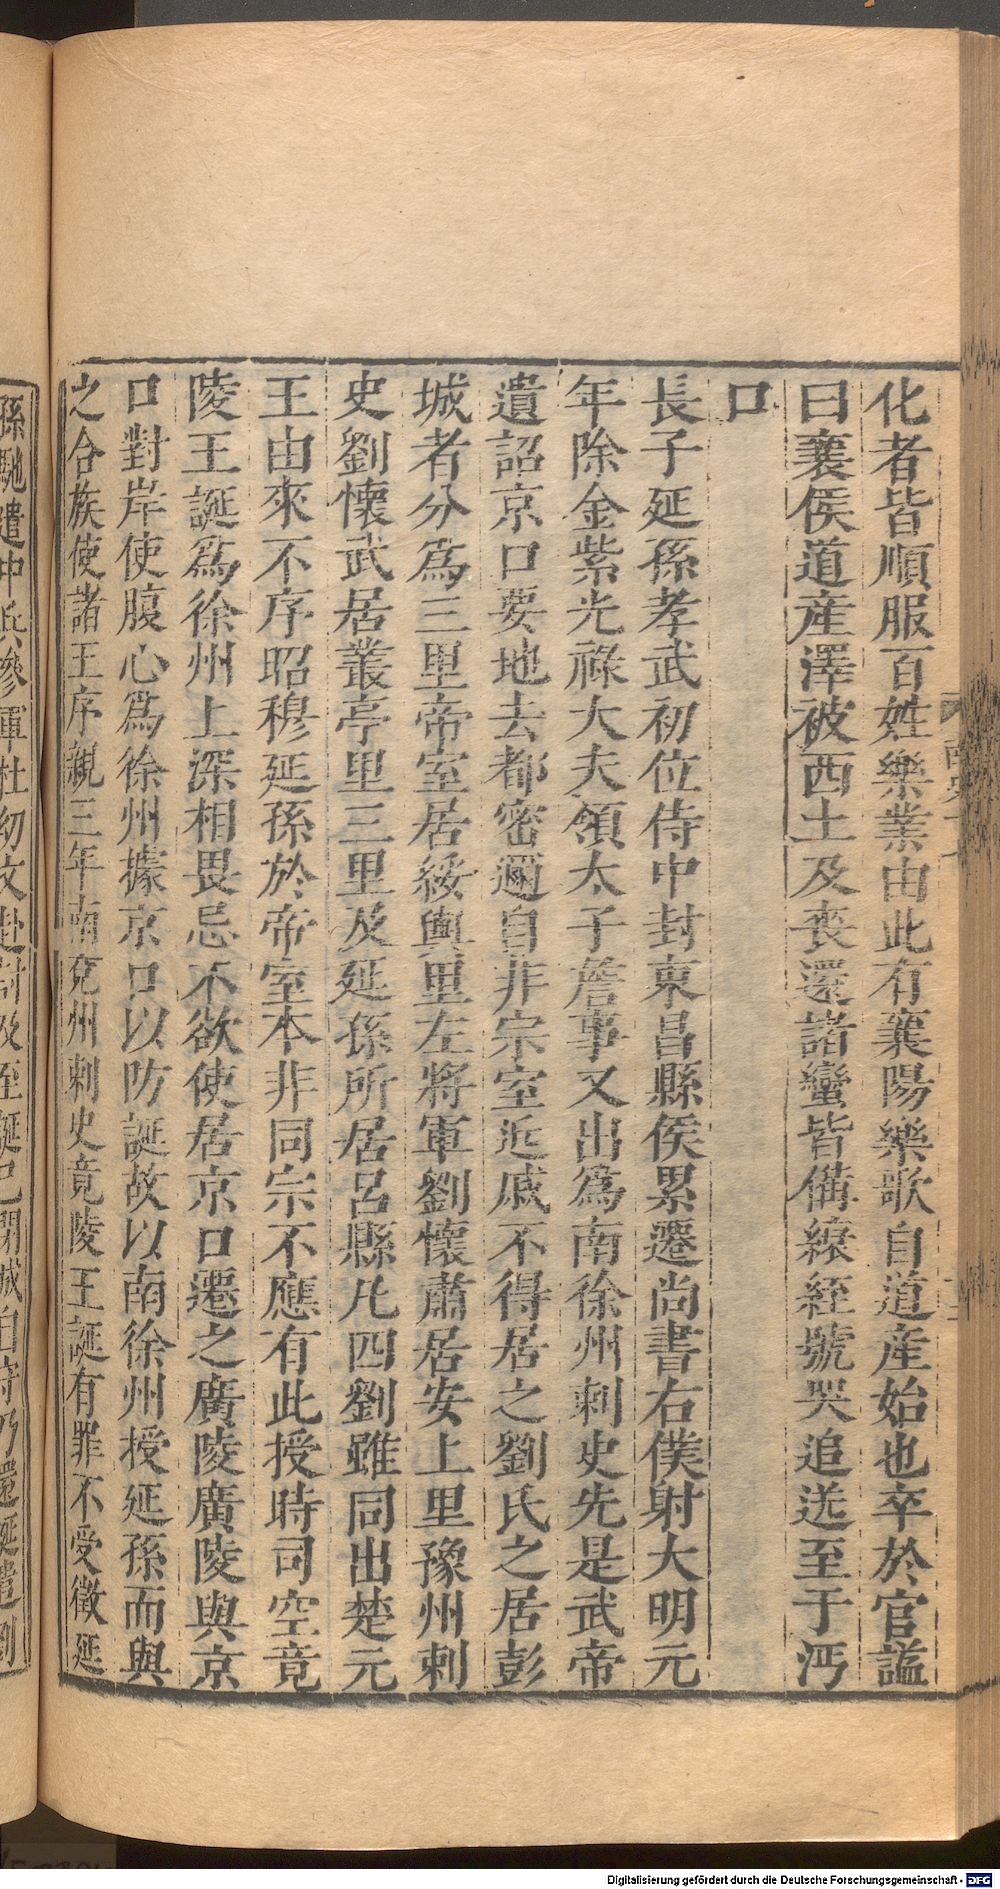 化者皆順服百姓樂業由此有襄陽樂歌自道産始也卒於官謚
曰襄侯道産澤被西土及喪還諸蠻皆備縗絰號哭追送至于沔
口
長子延孫孝武初位侍中封東昌縣侯累遷尚書右僕射大明元
年除金紫光祿大夫領太子詹事又出爲南徐州刺史先是武帝
遺詔京口要地去都密邇自非宗室近戚不得居之劉氏之居彭
城者分爲三里帝室居綏輿里左將軍劉懷肅居安上里豫州刺
史劉懷武居叢亭里三里及延孫所居呂縣凡四劉雖同出楚元
王由來不序昭穆延孫於帝室本非同宗不應有此授時司空竟
陵王誕爲徐州上深相畏忌不欲使居京口遷之廣陵廣陵與京
口對岸使腹心爲徐州據京口以防誕故以南徐州授延孫而與
之合族使諸王序親三年南兗州刺史竟陵王誕有罪不受徵延
孫馳遣中兵參軍杜幼文赴討及至誕已閉城自守乃還誕遣劉
Digitalisierung gefördert durch die Deutsche Forschungsgemeinschaft - DFG